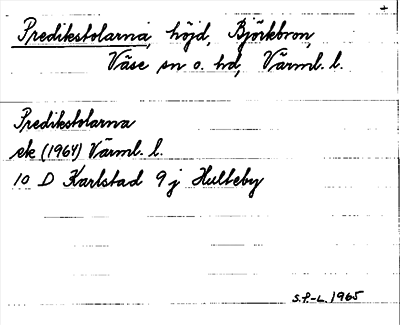 +
Predikstolarna, höjd, Björkbron,
Väse sn o. hd, Värml. l.
Predikstolarna
ek (1964) Värml. l.
10 D Karlstad 9 j Hulteby
S.F.-L. 1965